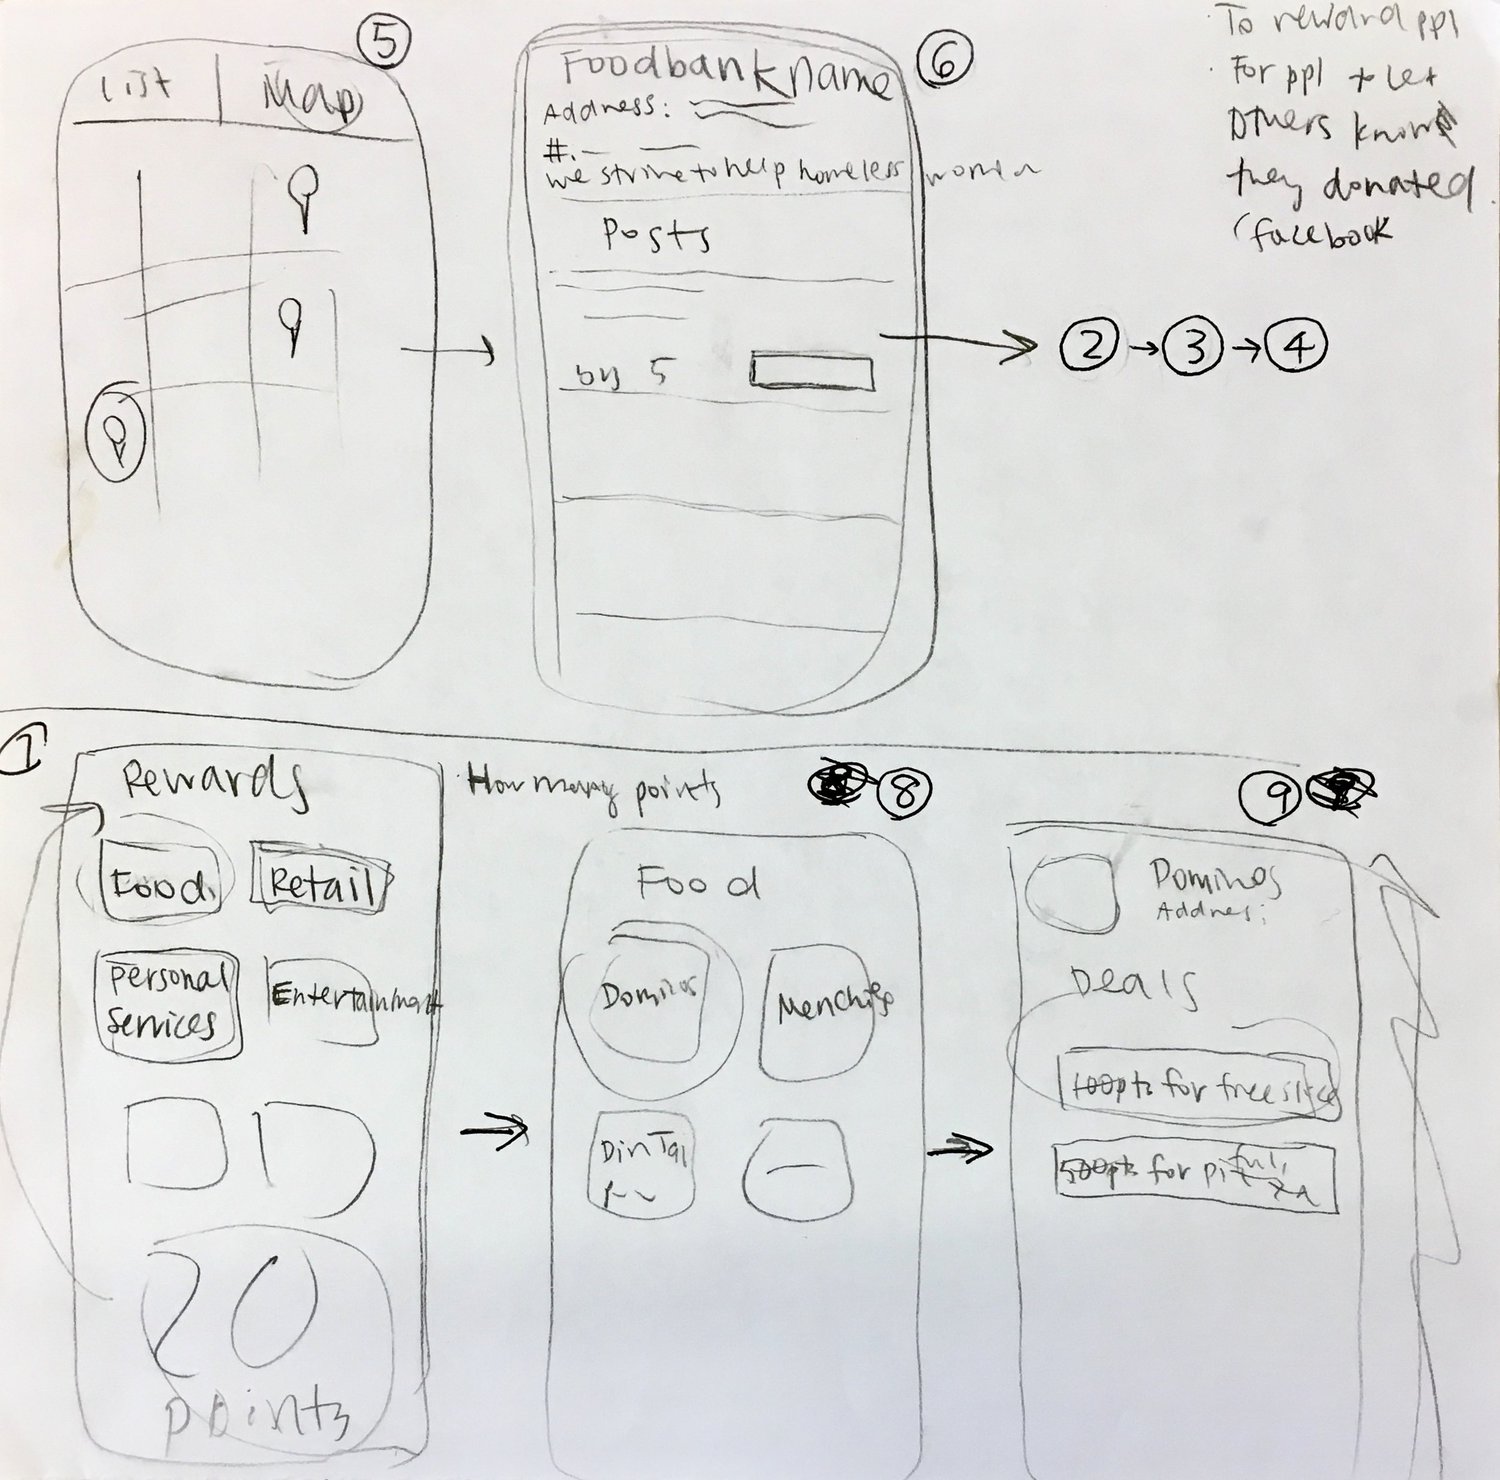 5
List | Map
6
Foodbank name
Address:
#:
we strive to help homeless women
Posts
by 5
To reward ppl
For ppl to let
others know
they donated
(facebook
2 → 3 → 4
7
Rewards
Food
Retail
Personal
Services
Entertainment
20
points
How many points
8
Food
Dominos
Menchies
Din Tai
9
Dominos
Address:
Deals
100pts for free slice
500pts for full
pizza